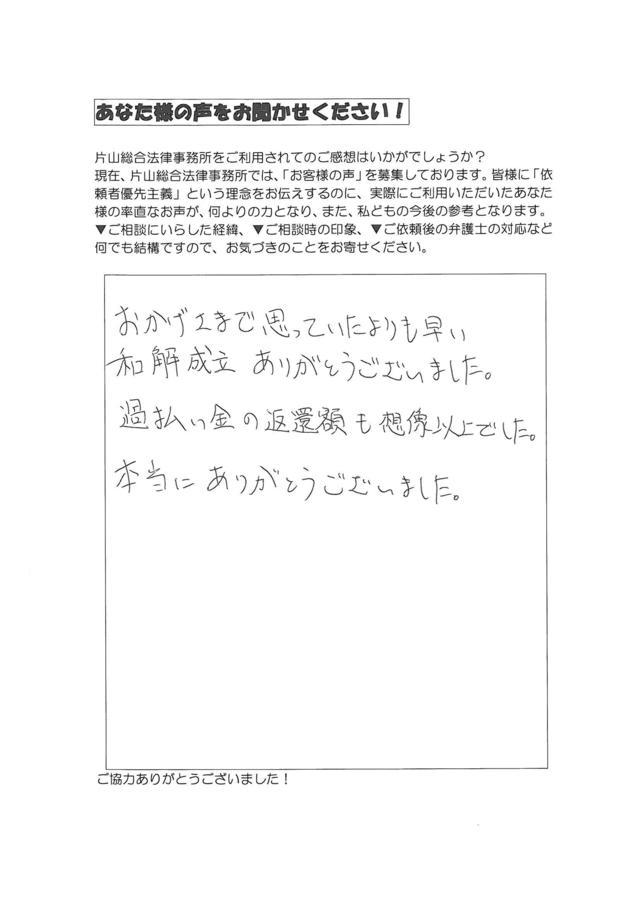 あなた様の声をお聞かせください！
片山総合法律事務所をご利用されてのご感想はいかがでしょうか？
現在、片山総合法律事務所では、「お客様の声」を募集しております。皆様に「依
頼者優先主義」という理念をお伝えするのに、実際にご利用いただいたあなた
様の率直なお声が、何よりの力となり、また、私どもの今後の参考となります。
▼ご相談にいらした経緯、▼ご相談時の印象、▼ご依頼後の弁護士の対応など
何でも結構ですので、お気づきのことをお寄せください。
おかげさまで思っていたよりも早い
和解成立 ありがとうございました。
過払い金の返還額も想像以上でした。
本当にありがとうございました。
ご協力ありがとうございました！